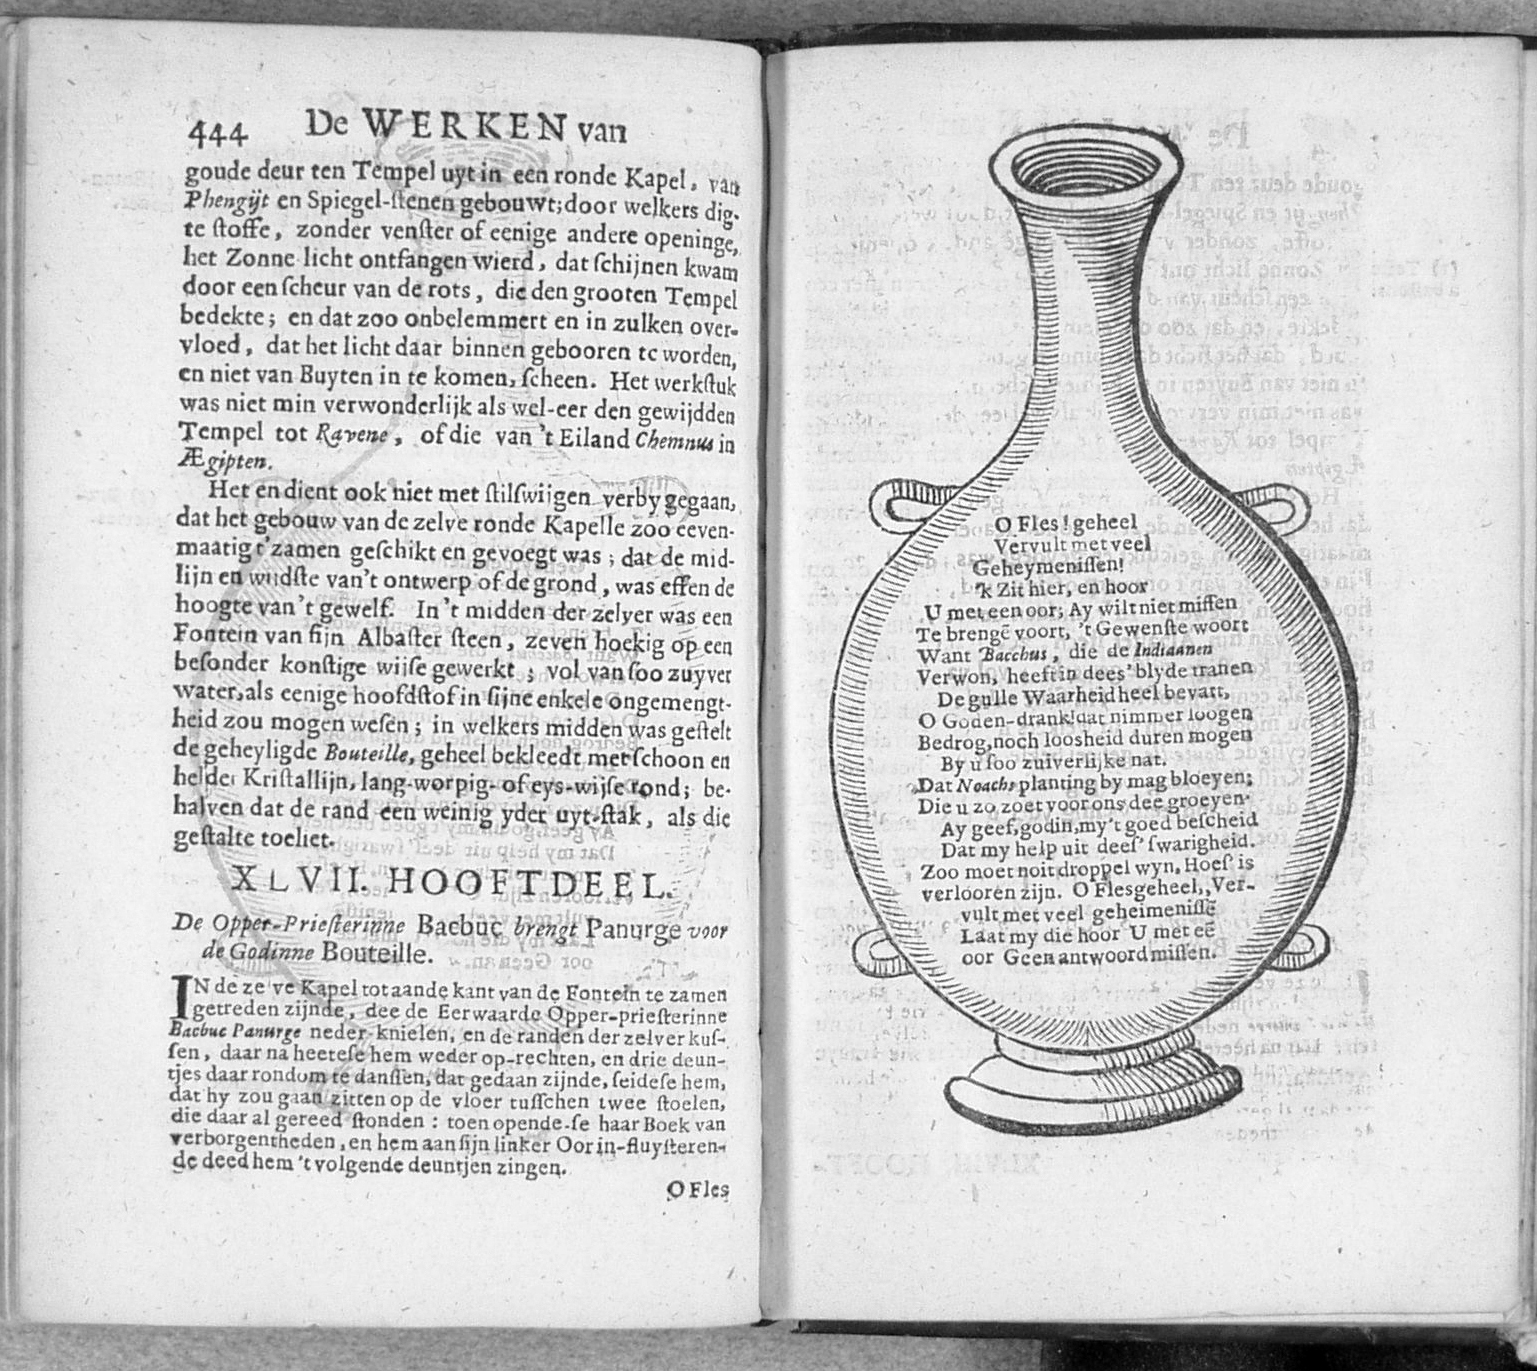 444 De WERKEN van
goude deur ten Tempel uyt in een ronde Kapel, van
Phengijt en Spiegel-ſtenen gebouwt; door welkers dig-
te ſtoffe, zonder venſter of eenige andere openinge,
het Zonne licht ontfangen wierd, dat ſchijnen kwam
door een ſcheur van de rots, die den grooten Tempel
bedekte; en dat zoo onbelemmert en in zulken over-
vloed, dat het licht daar binnen gebooren te worden,
en niet van Buyten in te komen, ſcheen. Het werkſtuk
was niet min verwonderlijk als wel-eer den gewijdden
Tempel tot Ravene, of die van 't Eiland Chemnus in
Ægipten.
Het en dient ook niet met ſtilſwijgen verby gegaan,
dat het gebouw van de zelve ronde Kapelle zoo eeven-
maatig t'zamen geſchikt en gevoegt was; dat de mid-
lijn en wijdſte van't ontwerp of de grond, was effen de
hoogte van 't gewelf. In 't midden der zelver was een
Fontein van fijn Albaſter ſteen, zeven hoekig op een
beſonder konſtige wijſe gewerkt; vol van ſoo zuyver
water, als eenige hoofdſtof in ſijne enkele ongemengt-
heid zou mogen weſen; in welkers midden was geſtelt
de geheyligde Bouteille, geheel bekleedt met ſchoon en
helder Kriſtallijn, lang-worpig- of eys-wijſe rond; be-
halven dat de rand een weinig yder uyt-ſtak, als die
geſtalte toeliet.
XLVII. HOOFTDEEL.
De Opper-Prieſterinne Bacbuc brengt Panurge voor
de Godinne Bouteille.
IN de zelve Kapel tot aan de kant van de Fontein te zamen
getreden zijnde, dee de Eerwaarde Opper-prieſterinne
Bacbuc Panurge neder-knielen, en de randen der zelver kuſ-
ſen, daar na heeteſe hem weder op-rechten, en drie deun-
tjes daar rondom te danſſen, dat gedaan zijnde, ſeideſe hem,
dat hy zou gaan zitten op de vloer tuſſchen twee ſtoelen,
die daar al gereed ſtonden: toen opende-ſe haar Boek van
verborgentheden, en hem aan ſijn linker Oor in-fluyſteren-
de deed hem 't volgende deuntjen zingen.
O Fles
O Fles! geheel
Vervult met veel
Geheymeniſſen!
'k Zit hier, en hoor
U met een oor; Ay wilt niet miſſen
Te brengē voort, 't Gewenſte woort
Want Bacchus, die de Indiaanen
Verwon, heeft in dees' blyde tranen
De gulle Waarheid heel bevatt,
O Goden-drank! dat nimmer loogen
Bedrog, noch loosheid duren mogen
By u ſoo zuiverlijke nat.
Dat Noachs planting by mag bloeyen;
Die u zo zoet voor ons dee groeyen.
Ay geef, godin, my 't goed beſcheid
Dat my help uit deeſ' ſwarigheid.
Zoo moet noit droppel wyn, Hoeſ is
verlooren zijn. O Fles geheel, Ver-
vult met veel geheimeniſſē
Laat my die hoor U met eē
oor Geen antwoord miſſen.